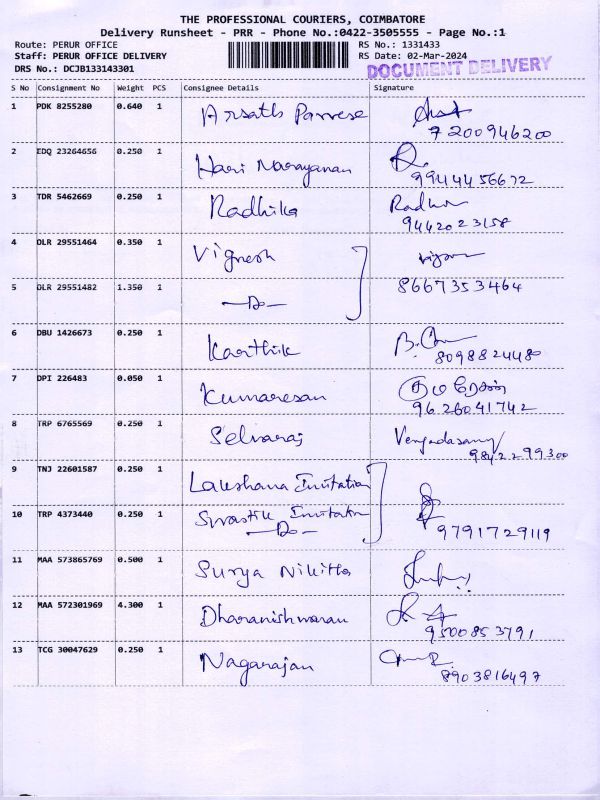 THE PROFESSIONAL COURIERS, COIMBATORE
Delivery Runsheet - PRR - Phone No.:0422-3505555 - Page No.:1
Route: PERUR OFFICE RS No.: 1331433
Staff: PERUR OFFICE DELIVERY RS Date: 02-Mar-2024
DRS No.: DCJB133143301 DOCUMENT DELIVERY
S No Consignment No Weight PCS Consignee Details Signature
1 PDK 8255280 0.640 1 Arsath Parvese
7200946200
2 EDQ 23264656 0.250 1 Hari Narayanan
9944456672
3 TDR 5462669 0.250 1 Radhika Radhika
9442023158
4 DLR 29551464 0.350 1 Vignesh
5 DLR 29551482 1.350 1 —Do— 8667353464
6 DBU 1426673 0.250 1 Karthik
8098824480
7 DPI 226483 0.050 1 Kumaresan குமரேசன்
9626041742
8 TRP 6765569 0.250 1 Selvaraj Venjadasamy
9842299300
9 TNJ 22601587 0.250 1 Lakshana Invitation
10 TRP 4373440 0.250 1 Swastik Invitation
—Do— 9791729119
11 MAA 573865769 0.500 1 Surya Nikitha
12 MAA 572301969 4.300 1 Dharanishwaran
9500853791
13 TCG 30047629 0.250 1 Nagarajan
8903816497